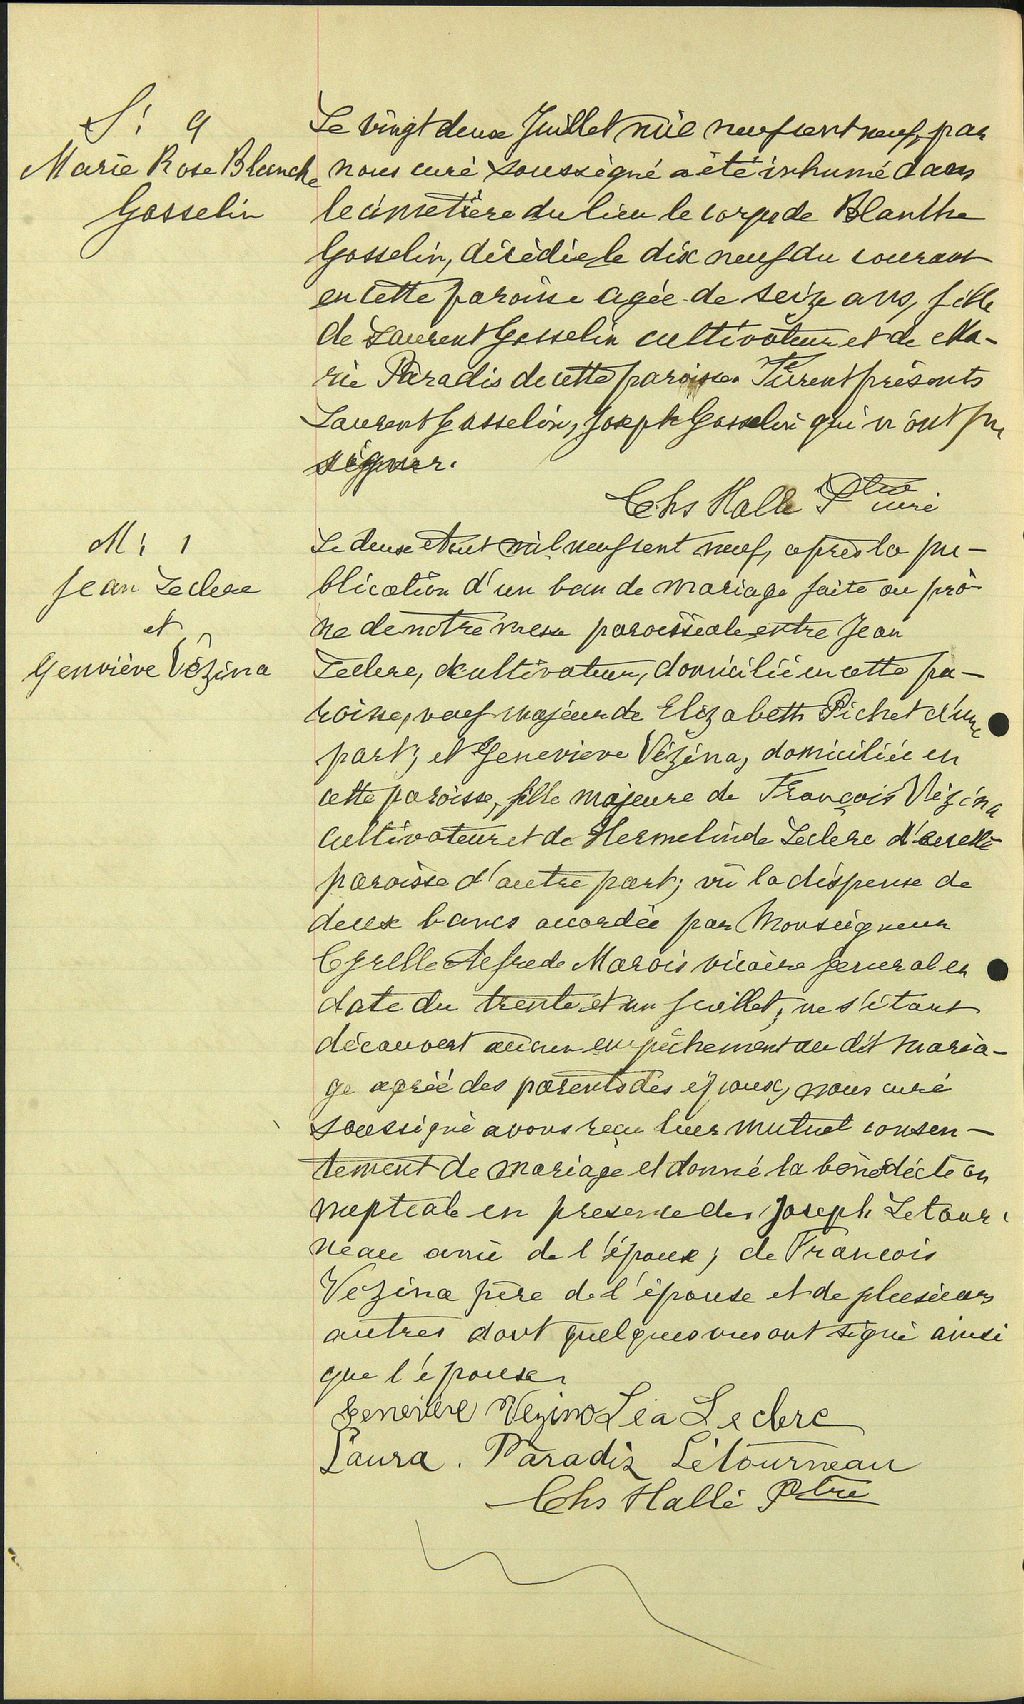 S. 9
Marie Rose Blanche
Gosselin
Le vingt deux Juillet mil neuf cent neuf, par
nous curé soussigné a été inhumé dans
le cimetière du lieu le corps de Blanche
Gosselin, décédée le dix neuf du courant
en cette paroisse agée de seize ans, fille
de Laurent Gosselin cultivateur et de Ma-
rie Paradis de cette paroisse. Furent présents
Laurent Gosselin, Joseph Gosselin qui n'ont pu
signer.
Chs Hallé Ptre curé
M. 1
Jean Leclerc
et
Geneviève Vézina
Le deux Aout mil neuf cent neuf, après la pu-
blication d'un ban de mariage faite au prô-
ne de notre messe paroissiale entre Jean
Leclerc, cultivateur, domicilié en cette pa-
roisse, veuf majeur de Elizabeth Pichet d'une
part; et Geneviève Vézina, domiciliée en
cette paroisse, fille majeure de François Vézina
cultivateur et de Hermelinde Leclerc d'
paroisse d'autre part; vû la dispense de
deux bancs accordée par Monseigneur
Cyrille Alfrede Marois vicaire general en
date du trente et un juillet; ne s'étant
découvert aucun empêchement au dit maria-
ge agréé des parents des époux, nous curé
soussigné avons reçu leur mutuel consen-
tement de mariage et donné la bénédiction
nuptiale en presence de Joseph Letour-
neau ami de l'époux; de Francois
Vezina père de l'épouse et de plusieurs
autres dont quelques uns ont signé ainsi
que l'épouse.
Geneviève Vezina Léa Leclerc
Laura. Paradis Létourneau
Chs Hallé Ptre